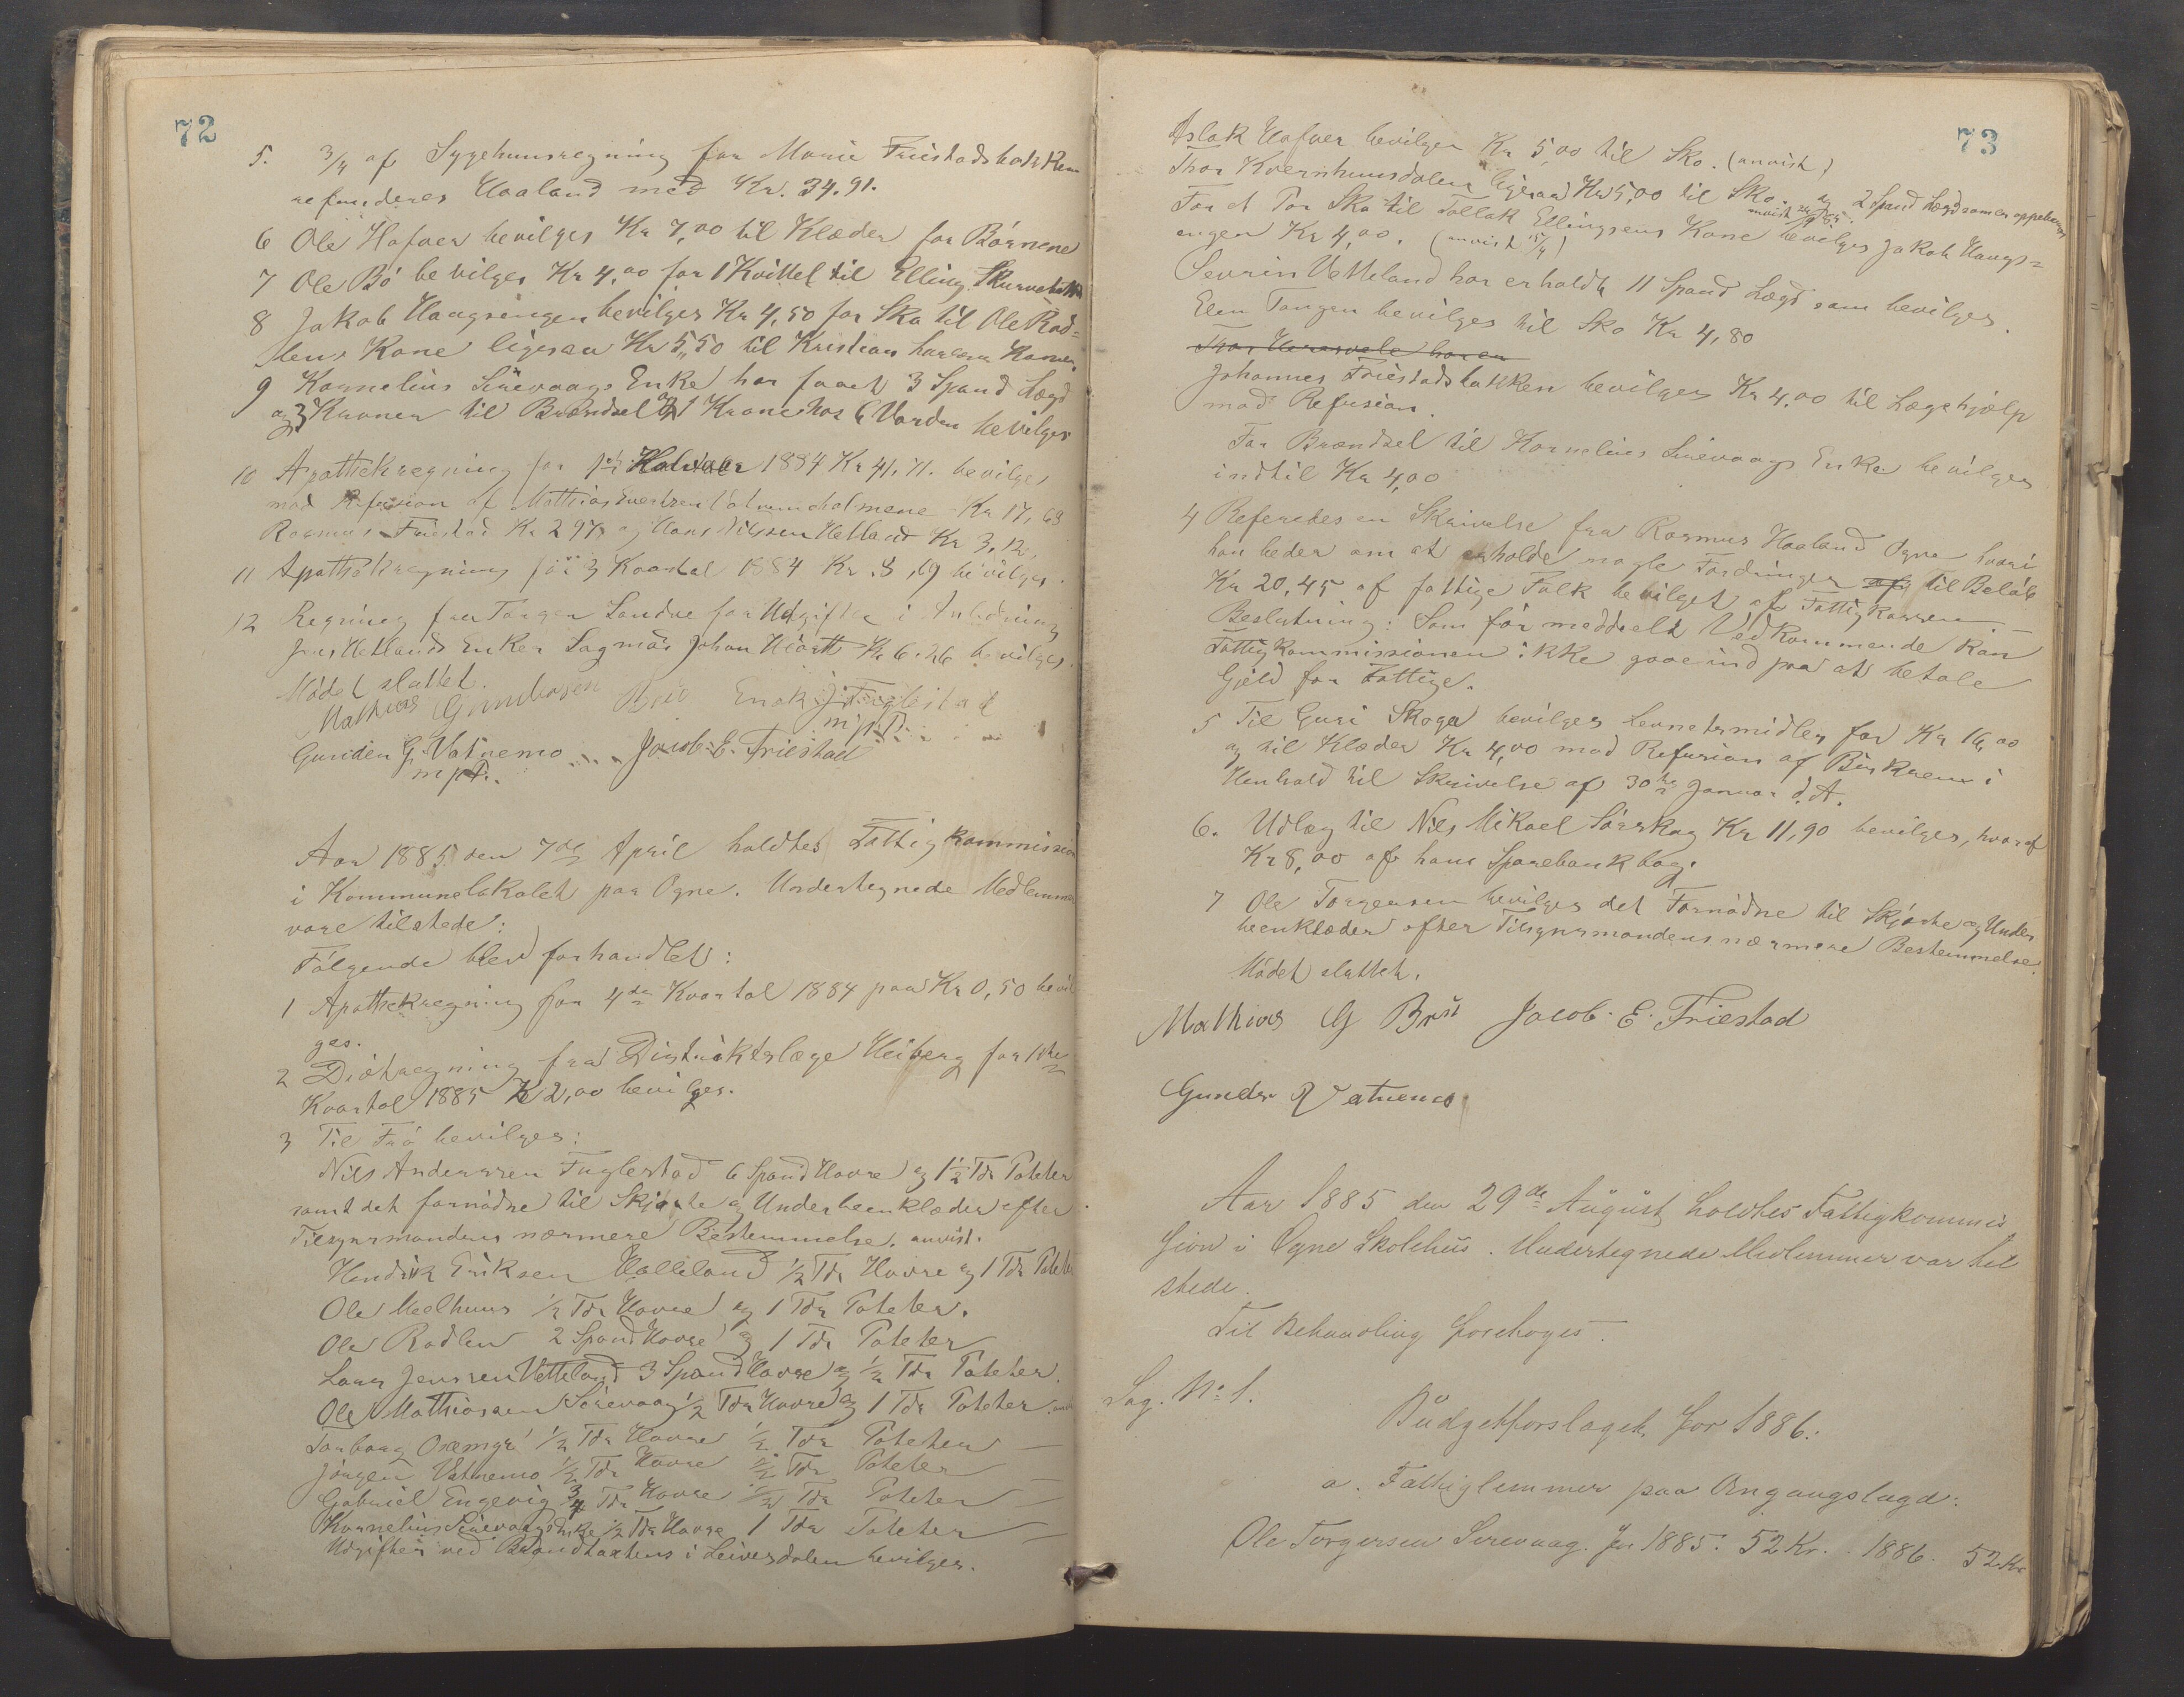 72
5. 3/4 af Sygehuusregning for Marie Friestadsbakken
refunderes Haaland med Kr. 34.91.
6 Ole Hafver bevilges Kr 7,00 til Klæder for Børnene
7 Ole Bö bevilges Kr 4,00 for 1 Kvittel til Elling
8 Jakob Haugsengen bevilges Kr 4,50 for Sko til Ole Rod-
lens Kone ligesaa Kr 5,50 til Kristian
9 Kornelius Sirevaags Enke har faaet 3 Spand Lægd
og 3 Kroner til Brændsel og 1 Krone hos G Varden bevilges
10 Apothekregning for 1884 Kr 41.71. bevilges
mod Refusion af Mathias Kr 17,69
Rasmus Friestad Kr 2 97 og Hans Nilssen Hetland Kr 3,12.
11 Apothekregning for 3 Kvartal 1884 Kr. 8,69 bevilges.
12 Regning fra Torger Londve for Udgifter i Anledning
Jens Hetlands Enkes Sagmål Johan Kr 6.26 bevilges.
Mödet sluttet.
Mathias Gundersen Brü Enok J Fuglestad
m/p.P.
Gunder G. Vatnemo Jacob E. Friestad
m/p.P.
Aar 1885 den 7de April holdtes Fattigkommission
i Kommunelokalet paa Ogne. Undertegnede Medlemmer
vare tilstede:
Følgende blev forhandlet:
1 Apothekregning for 4de Kvartal 1884 paa Kr 0,50 bevil
ges.
2 Diötregning fra Distriktslæge Heiberg for 1ste
Kvartal 1885 Kr 2,00 bevilges.
3 Til Frö bevilges:
Nils Anderssen Fuglestad 6 Spand Havre og 1 1/2 Tdr Poteter
samt det fornödne til Skjorte og Underbeenklæder efter
Tilsynsmandens nærmere Bestemmelse. anvist.
Hendrik Eriksen Halleland 1/2 Tdr Havre og 1 Tdr Poteter
Ole Meelhuus 1/2 Tdr Havre og 1 Tdr Poteter.
Ole Rodlen 2 Spand Havre og 1 Tdr Poteter
Lars Jenssen Vetteland 3 Spand Havre og 1/2 Tdr Poteter.
Ole Mathiassen Sirevaag 1/2 Tdr Havre og 1 Tdr Poteter
Torborg 1/2 Tdr Havre 1/2 Tdr Poteter —
Jörgen Vatnemo 1/2 Tdr Havre 1/2 Tdr Poteter —
Gabriel Engevig 3/4 Tdr Havre 1/2 Tdr Poteter —
Kornelius Sirevaags Enke 1/2 Tdr Havre 1 Tdr Poteter —
Udgifter ved Brandtaxtens i Leiversdalen bevilges.
73
Aslak Hafver bevilges Kr 5,00 til Sko. (anvist)
Thor Kvernhuusdalen ligesaa Kr 5,00 til Sko. og 2 Spand Lægd som er oppebaaret
For et Par Sko til Tollak Ellingsens Kone bevilges Jakob Haugs=
engen Kr 4,00. (anvist 18/4)
Sevrin Vetteland har erholdt 11 Spand Lægd som bevilges.
Elen Tangen bevilges til Sko Kr 4,80
Johannes Friestadsbakken bevilges Kr 4,00 til Lægehjælp
mod Refusion.
For Brændsel til Kornelius Sirevaags Enke bevilges
indtil Kr 4,00
4 Referetes en Skrivelse fra Rasmus Haaland Ogne hvori
han beder om at erholde nogle Fordringer til Beløb
Kr 20,45 af fattige Folk bevilget af Fattigkassen.
Beslutning: Som før meddeelt Vedkommende kan
Fattigkommissionen ikke gaae ind paa at betale
Gjeld for Fattige.
5 Til Guri Skoga bevilges Levnetsmidler for Kr 16,00
og til Klæder Kr 4,00 mod Refusion af Birkrem i
Henhold til Skrivelse af 30te Januar d. A.
6. Udlæg til Nils Mikael Sørskog Kr 11,90 bevilges, hvoraf
Kr 8,00 af hans Sparebankbog.
7 Ole Torgersen bevilges det Fornødne til Skjorte og Under
beenklæder efter Tilsynsmandens nærmere Bestemmelse.
Mödet sluttet.
Mathias G Brü Jacob. E. Friestad
Gunder G Vatnemo
Aar 1885 den 29de August holdtes Fattigkommis
sion i Ogne Skolehus. Undertegnede Medlemmer var til
stede.
Til Behandling foretoges.
Sag. No 1.
Budgetforslaget for 1886.
a. Fattiglemmer paa Omgangslægd:
Ole Torgersen Sirevaag. For 1885. 52 Kr. 1886. 52 Kr